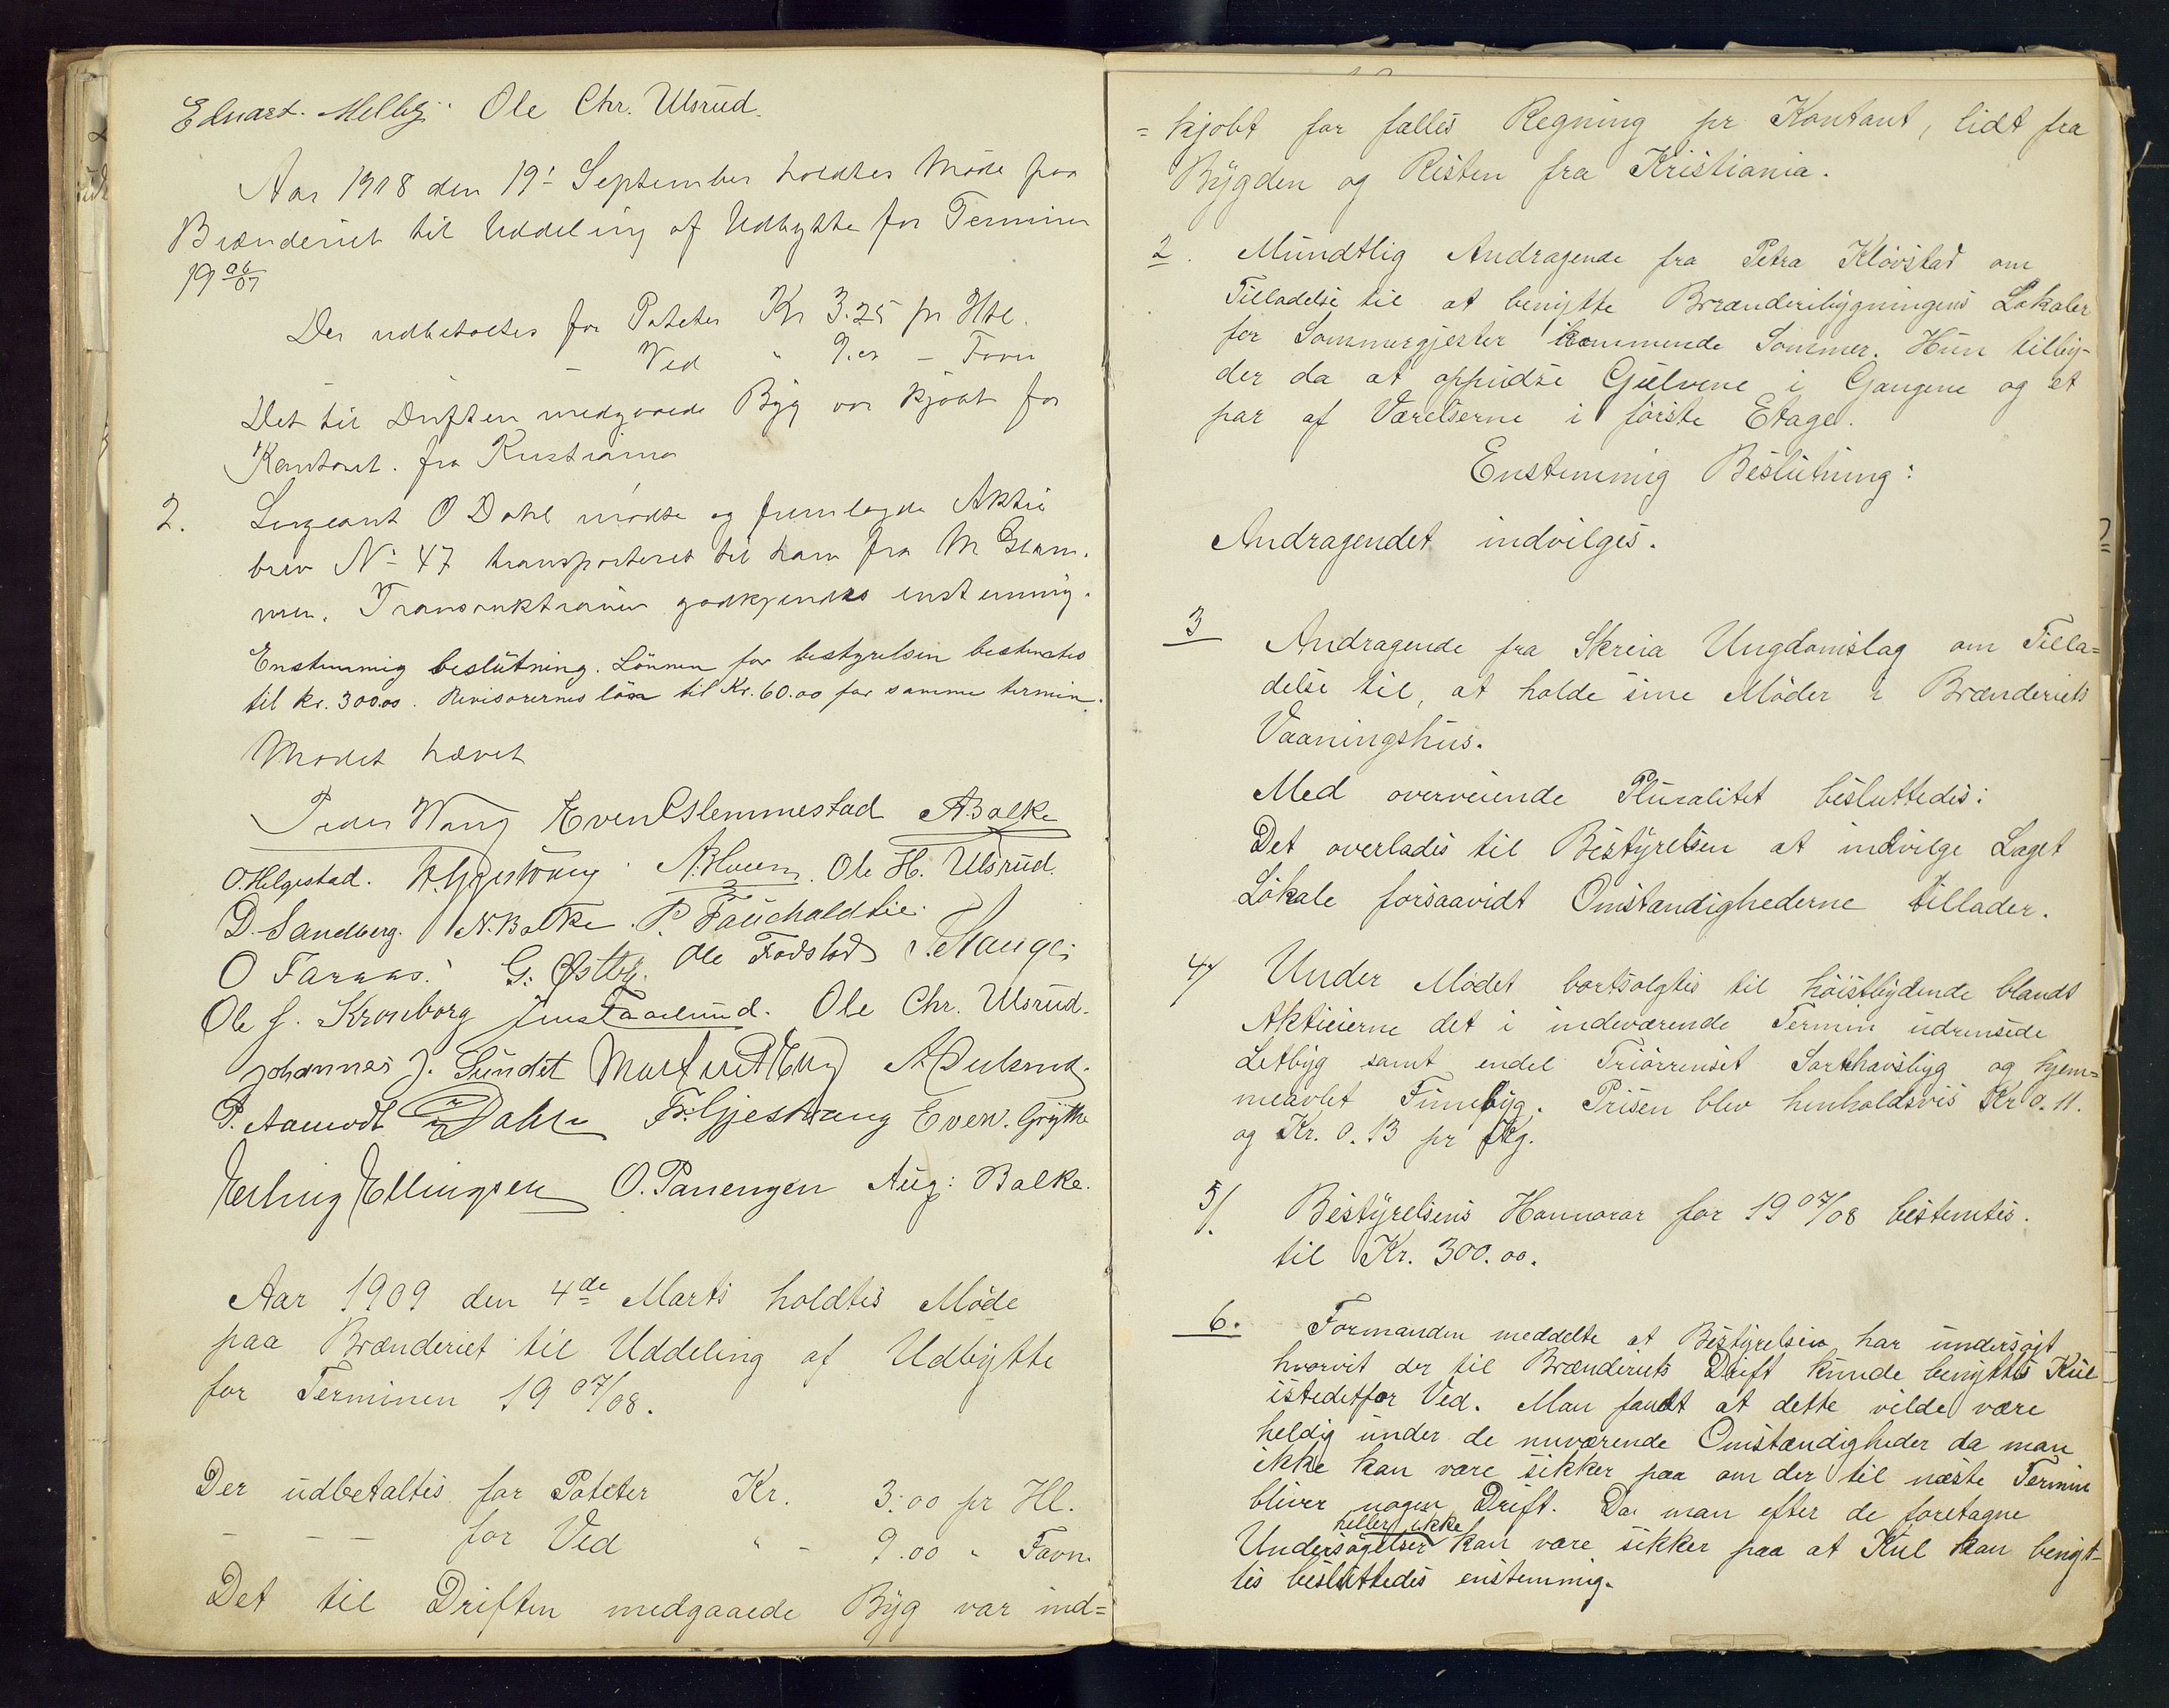 Eduart. Melby. Ole Chr. Ulsrud.
Aar 1908 den 19' September holdtes Møde paa
Brænderiet til Uddeling af Udbytte for Terminen
19 06/07
Der udbetaltes for Poteter Kr 3.25 pr Htl.
— Ved " 9.00 — Favn
Det til Driften medgaaede Byg var kjøbt for
Kontant. fra Kristiania
2. Sergeant O Dahl mødte og fremlagde Aktie
brev No 47 transporteret til ham fra M Glem.
men. Transaktionen godkjendtes enstemmig.
Enstemmig beslutning. Lønnen for bestyrelsen bestemtes
til kr. 300.00. Revisorernes løn til Kr. 60.00 for samme termin.
Mødet hævet
Peder Wang Even Slemmestad A Balke
O. Helgestad. H. Gjestvang A. Hveem. Ole H. Ulsrud.
D. Sandberg. N. Balke. P. Fauchaldlie.
O Faraas. G. Østby. Ole Fodstad J. Hauger
Ole J. Kronborg Jens Faarlund. Ole Chr. Ulsrud.
Johannes J. Sundet Martin
P. Aamodt O Dahl Fr. Gjestvang Even. Grytte
Erling Ellingsen O. Panengen Aug: Balke.
Aar 1909 den 4de Marts holdtes Møde
paa Brænderiet til Uddeling af Udbytte
for Terminen 19 07/08.
Der udbetaltes for Poteter Kr. 3.00 pr Hl.
— — — for Ved " - 9.00 " Favn.
Det til Driften medgaaede Byg var ind=
= kjøbt for fælles Regning pr Kontant, lidt fra
Bygden og Resten fra Kristiania.
2. Mundtlig Andragende fra Petra Kløvstad om
Tilladelse til at benytte Brænderibygningens Lokaler
for Sommergjester kommende Sommer. Hun tilby-
der da at oppudse Gulvene i Gangene og et
par af Værelserne i første Etage.
Enstemmig Beslutning:
Andragendet indvilges.
3 Andragende fra Skreia Ungdomslag om Tilla=
delse til, at holde sine Møder i Brænderiets
Vaaningshus.
Med overveiende Pluralitet besluttedes:
Det overlades til Bestyrelsen at indvilge Laget
Lokale forsaavidt Omstændighederne tillader.
4/ Under Mødet bortsolgtes til høistbydende blandt
Aktieierne det i indeværende Termin udrensede
Letbyg samt endel Triørrenset Sortehavsbyg og hjem=
meavlet Finebyg. Prisen blev henholdsvis Kr 0.11.
og Kr. 0.13 pr Kg.
5/. Bestyrelsens Honnorar for 19 07/08 bestemtes.
til Kr. 300.00.
6. Formanden meddelte at Bestyrelsen har undersøgt
hvorvit der til Brænderiets Drift kunde benyttes Kul
istedetfor Ved. Man fandt at dette vilde være
heldig under de nuværende Omstændigheder da man
ikke kan være sikker paa om der til næste Termin
bliver nogen Drift. Da man efter de foretagne
Undersøgelser heller ikke kan være sikker paa at Kul kan benyt-
tes besluttedes enstemmig.